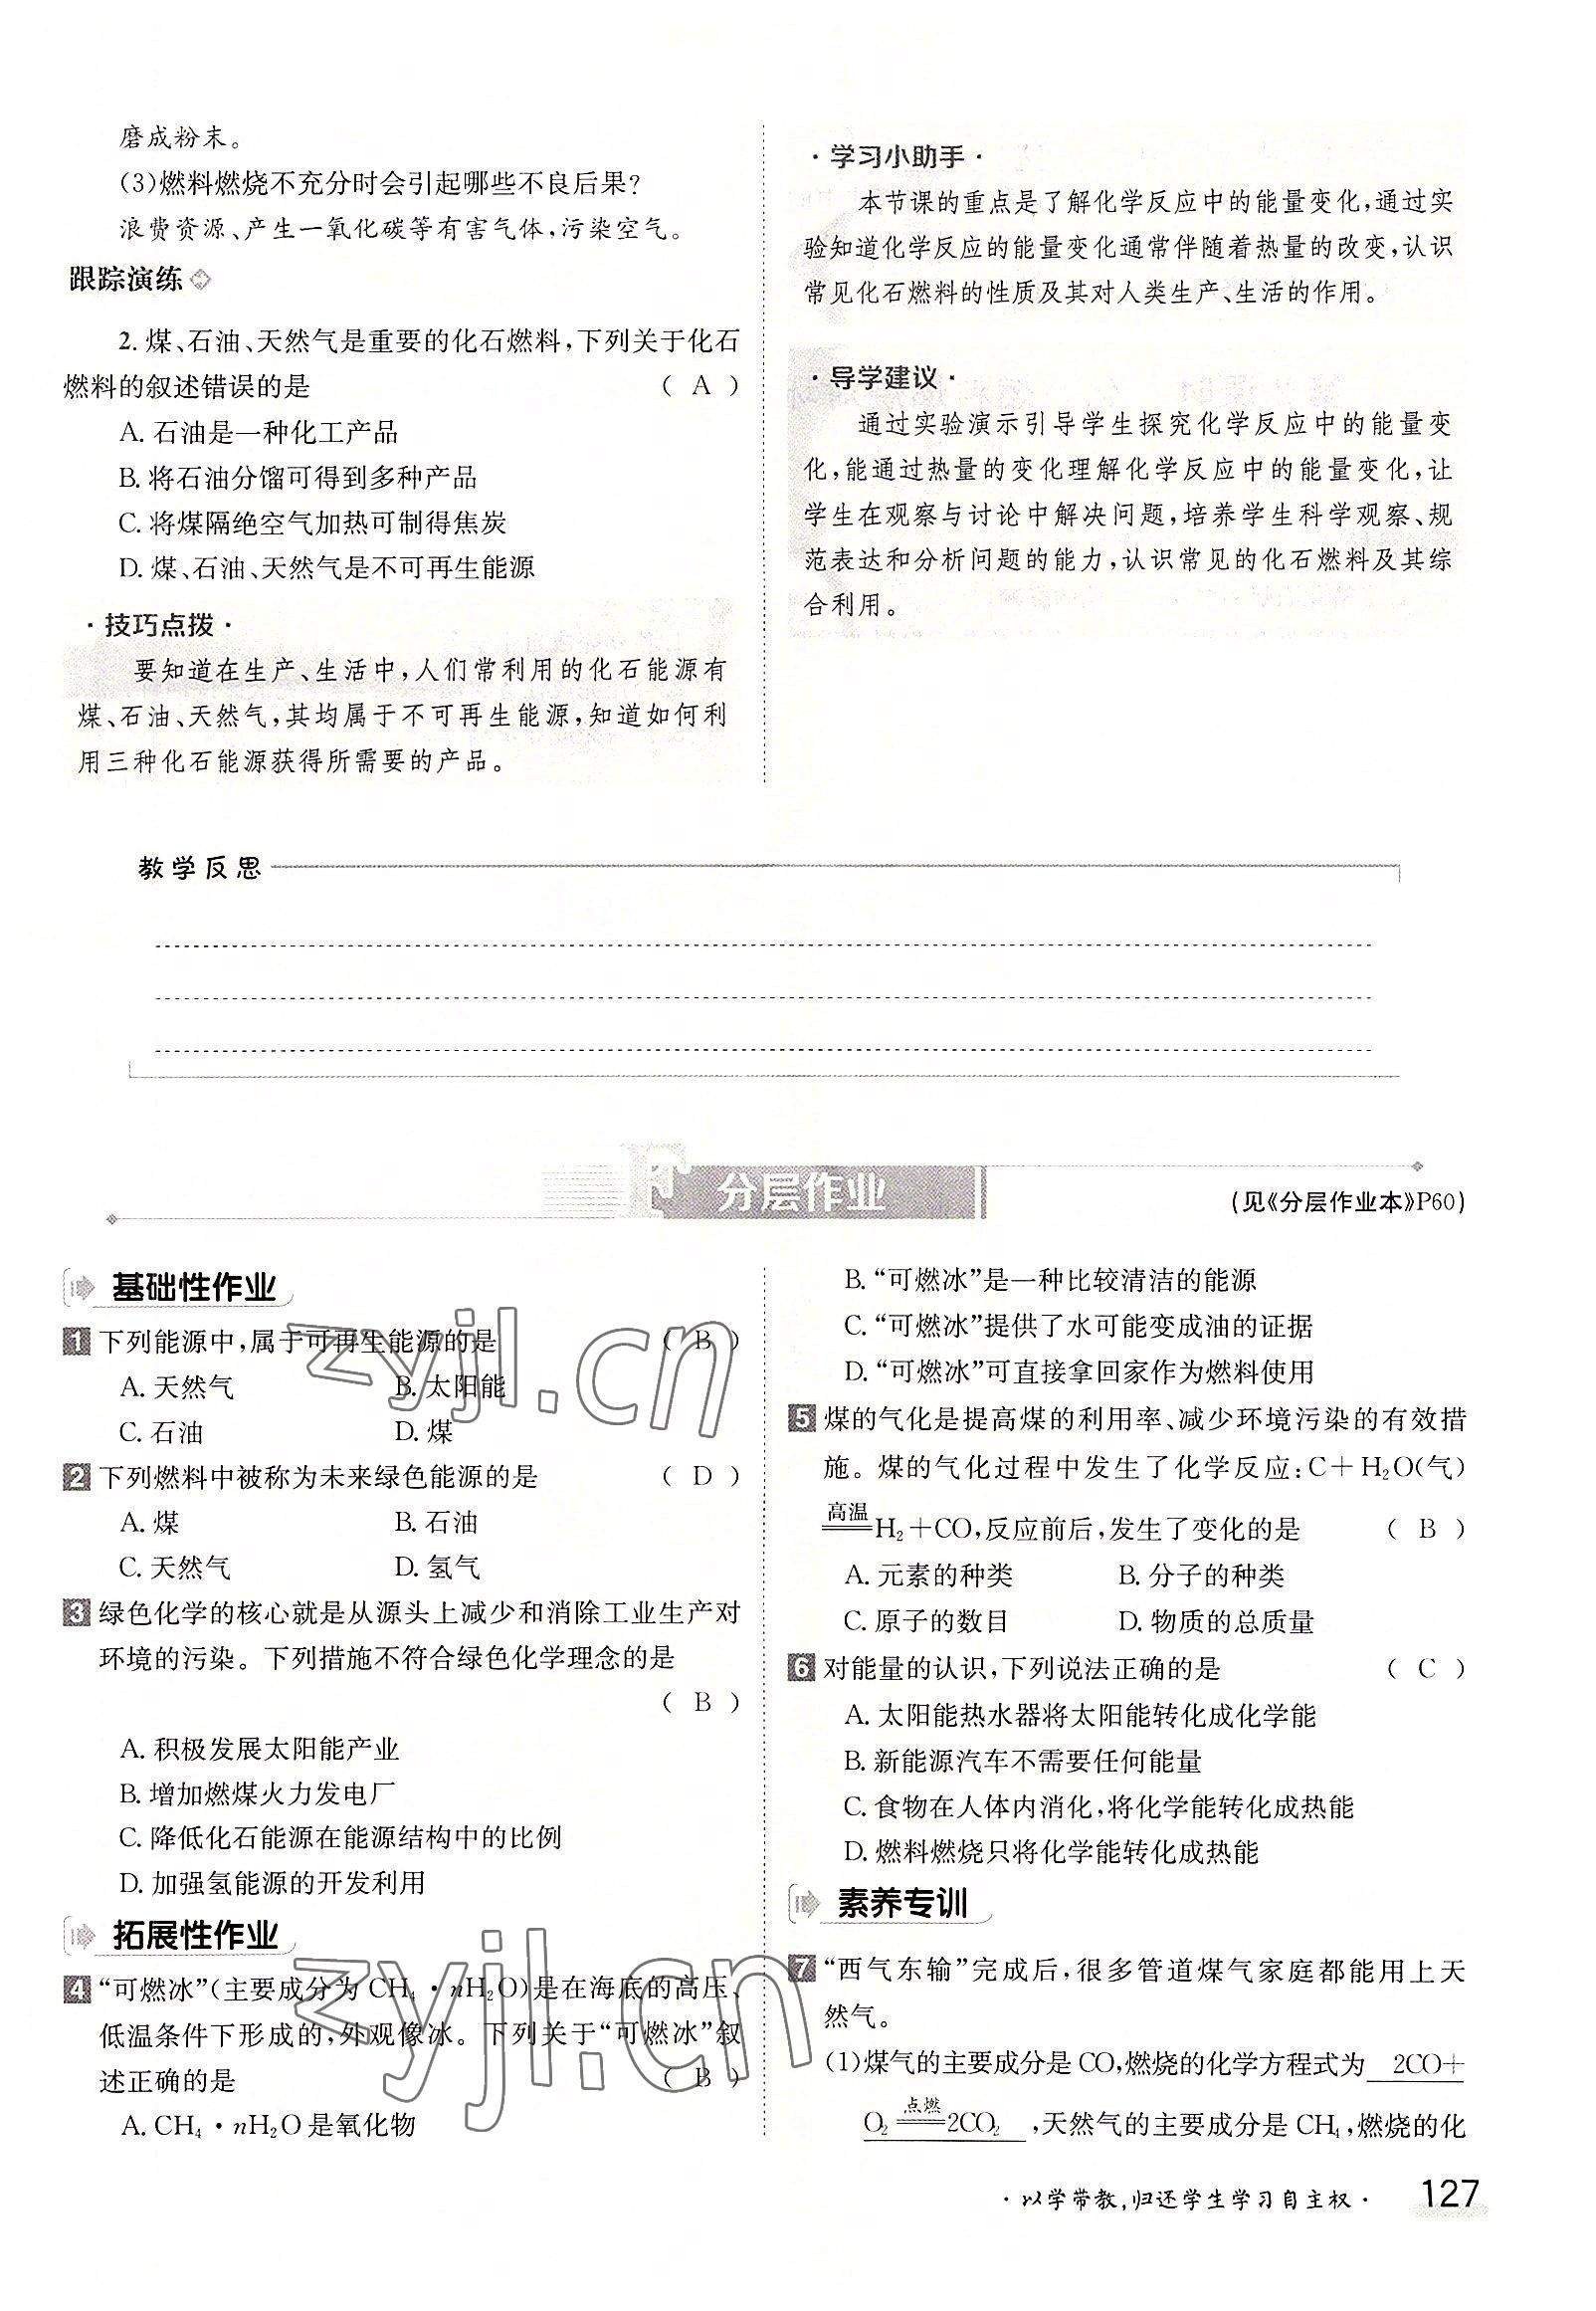 磨成粉末。
(3)燃料燃烧不充分时会引起哪些不良后果?
浪费资源、产生一氧化碳等有害气体,污染空气。
跟踪演练
2. 煤、石油、天然气是重要的化石燃料,下列关于化石
燃料的叙述错误的是 ( A )
A. 石油是一种化工产品
B. 将石油分馏可得到多种产品
C. 将煤隔绝空气加热可制得焦炭
D. 煤、石油、天然气是不可再生能源
·技巧点拨·
要知道在生产、生活中,人们常利用的化石能源有
煤、石油、天然气,其均属于不可再生能源,知道如何利
用三种化石能源获得所需要的产品。
·学习小助手·
本节课的重点是了解化学反应中的能量变化,通过实
验知道化学反应的能量变化通常伴随着热量的改变,认识
常见化石燃料的性质及其对人类生产、生活的作用。
·导学建议·
通过实验演示引导学生探究化学反应中的能量变
化,能通过热量的变化理解化学反应中的能量变化,让
学生在观察与讨论中解决问题,培养学生科学观察、规
范表达和分析问题的能力,认识常见的化石燃料及其综
合利用。
教学反思
分层作业
(见《分层作业本》P60)
基础性作业
1 下列能源中,属于可再生能源的是 ( B )
A. 天然气 B. 太阳能
C. 石油 D. 煤
2 下列燃料中被称为未来绿色能源的是 ( D )
A. 煤 B. 石油
C. 天然气 D. 氢气
3 绿色化学的核心就是从源头上减少和消除工业生产对
环境的污染。下列措施不符合绿色化学理念的是
( B )
A. 积极发展太阳能产业
B. 增加燃煤火力发电厂
C. 降低化石能源在能源结构中的比例
D. 加强氢能源的开发利用
拓展性作业
4 “可燃冰”(主要成分为 CH₄·nH₂O)是在海底的高压、
低温条件下形成的,外观像冰。下列关于“可燃冰”叙
述正确的是 ( B )
A. CH₄·nH₂O 是氧化物
B. “可燃冰”是一种比较清洁的能源
C. “可燃冰”提供了水可能变成油的证据
D. “可燃冰”可直接拿回家作为燃料使用
5 煤的气化是提高煤的利用率、减少环境污染的有效措
施。煤的气化过程中发生了化学反应:C+H₂O(气)
高温
══H₂+CO,反应前后,发生了变化的是 ( B )
A. 元素的种类 B. 分子的种类
C. 原子的数目 D. 物质的总质量
6 对能量的认识,下列说法正确的是 ( C )
A. 太阳能热水器将太阳能转化成化学能
B. 新能源汽车不需要任何能量
C. 食物在人体内消化,将化学能转化成热能
D. 燃料燃烧只将化学能转化成热能
素养专训
7 “西气东输”完成后,很多管道煤气家庭都能用上天
然气。
(1)煤气的主要成分是 CO,燃烧的化学方程式为 2CO+
点燃
O₂══2CO₂ ,天然气的主要成分是 CH₄,燃烧的化
·以学带教,归还学生学习自主权· 127
zyjl.cn
zyjl.cn